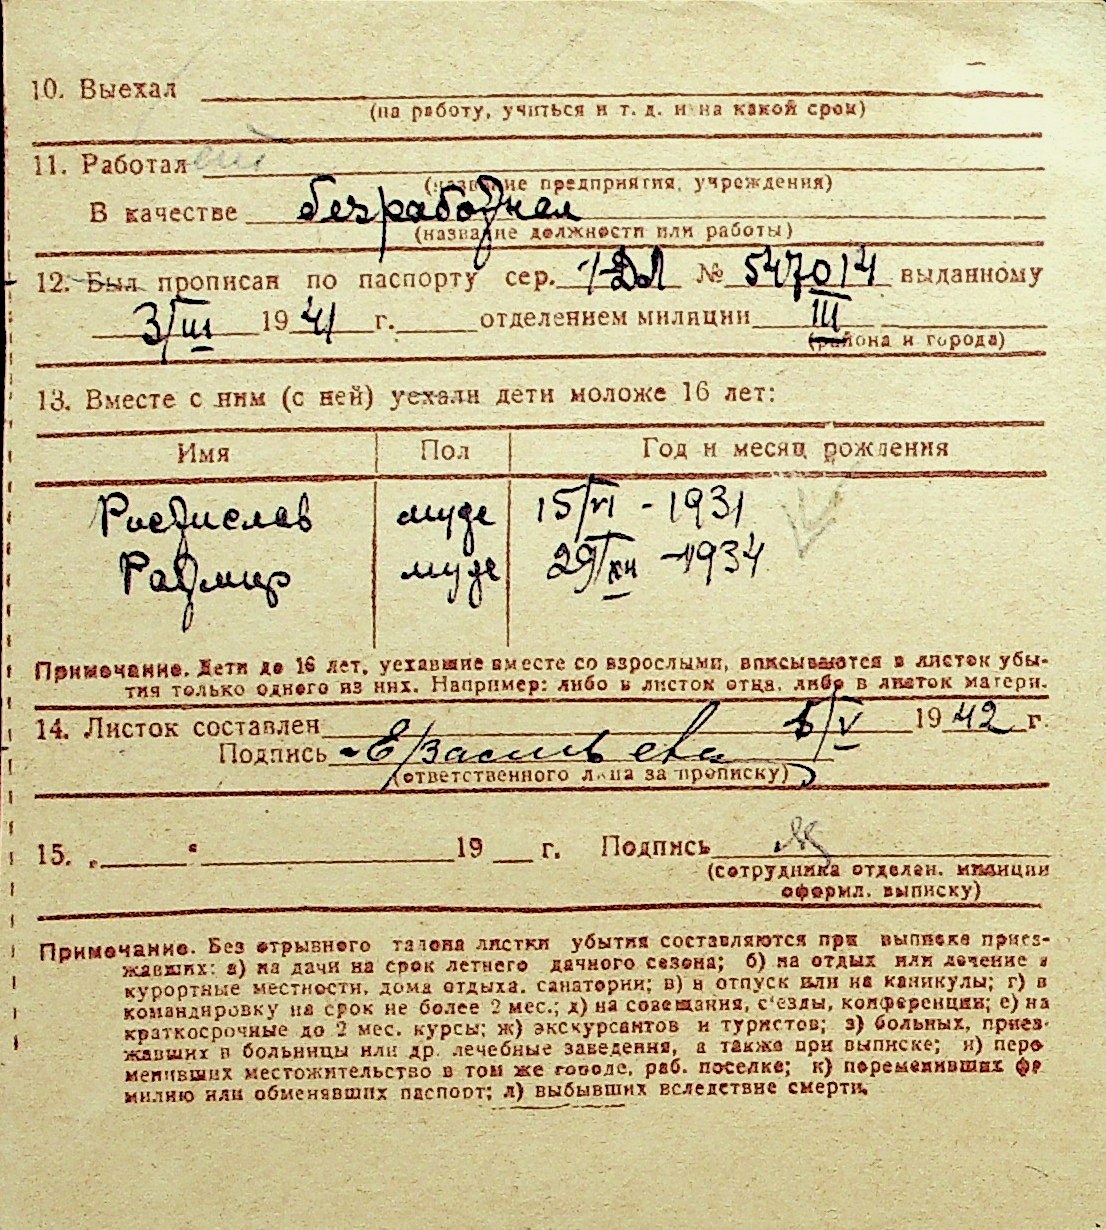 10. Выехал
(на работу, учиться и т. д. и на какой срок)
11. Работал
(название предприятия, учреждения)
В качестве безработная
(название должности или работы)
12. Был прописан по паспорту сер. № 547014 выданному
3/III 1941 г. отделением милиции III
(района и города)
13. Вместе с ним (с ней) уехали дети моложе 16 лет:
Имя Пол Год и месяц рождения
Ростислав муж 15/VI - 1931
Радмир муж 29/XII - 1934
Примечание. Дети до 16 лет, уехавшие вместе со взрослыми, вписываются в листок убы-
тия только одного из них. Например: либо в листок отца, либо в листок матери.
14. Листок составлен /V 1942 г.
Подпись
(ответственного лица за прописку)
15. „ “ 19 г. Подпись
(сотрудника отделен. милиции
оформл. выписку)
Примечание. Без отрывного талона листки убытия составляются при выписке приез-
жавших: а) на дачи на срок летнего дачного сезона; б) на отдых или лечение в
курортные местности, дома отдыха, санатории; в) в отпуск или на каникулы; г) в
командировку на срок не более 2 мес.; д) на совещания, с'езды, конференции; е) на
краткосрочные до 2 мес. курсы; ж) экскурсантов и туристов; з) больных, приез-
жавших в больницы или др. лечебные заведения, а также при выписке; и) пере
менивших местожительство в том же городе, раб. поселке; к) переменивших фа
милию или обменявших паспорт; л) выбывших вследствие смерти.